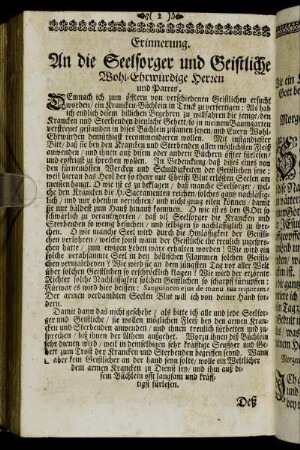 2
Erinnerung.
An die Seelsorger und Geistliche
Wohl-Ehrwürdige Herren
und Patres.
DEmnach ich zum öfftern von verschiedenen Geistlichen ersucht
worden / ein Krancken-Büchlein in Truck zu verfertigen: Als hab
ich endlich disem billichen Begehren zu willfahren die jenige den
Krancken und Sterbenden dienliche Gebett / so in meinem Baumgarten
verstreuet gestanden in dises Büchlein zusamen
Ehrwürden demüthigst recommendieren wollen. Mit inständigster
Bitt / daß sie bey den Krancken und Sterbenden allen möglichen Fleiß
anwenden / und ihnen auß disem oder andern Büchern öffter fürlesen
und eyffrigst zu sprechen wollen. In Bedenckung daß dises eines von
den fürnembsten Wercken und Schuldigkeiten der Geistlichen seye /
weil hieran das Heil der so theur mit Christi Blut erlösten Seelen am
meisten hangt. O wie ist es zu beklagen / daß manche Seelsorger /
die den Krancken die H. Sacramenten reichen, solches gantz nachläßig-
lich / und nur obenhin verrichten / und nicht gnug eilen können / damit
sie nur bald vom Hauß hinauß kommen. O wie ist es bey GOtt so
schwärlich zu verantworten / daß vil Seelsorger die Krancken und
Sterbenden so wenig besuchen / und selbigen so nachläßiglich zu spre-
chen. O wie manche Seel wird durch die Omläßigkeit der Geist-
lichen verlohren / welche sonst wann der Geistliche das seinige gethan
hätte / zum ewigen Leben wäre erhalten worden! Wie wird ein
solche verabsaumte Seel in den höllischen Flammen solchen Geistlichen
vermaledeyen! Wie wird sie am dem jüngsten Tag vor aller Welt
über solchen Geistlichen so erschröcklich klagen! Wie wird der gerechte
Richter solche Nachläßigkeit solchen Geistlichen so scharpff fürwerffen:
Fürwar es wird da heissen: Sanguinem ejus de manu tua requiram:
Der armen verdambten Seelen Blut will ich von deiner Hand for-
dern.
Damit dann das nicht geschehe / als bitte ich alle und jede Seelsor-
ger und Geistliche / sie wollen möglichen Fleiß bey den armen Kran-
cken und Sterbenden anwenden / und ihnen treulich fürbetten und zu-
sprechen / biß ihnen der Athem außgehet. Worzu ihnen diß Büchlein
sehr dienen wird / weil in demselbigen sehr kräfftige Seuffzer und Ge-
bett zum Trost der Krancken und Sterbenden begriffen seynd. Wann
aber kein Geistlicher an der hand seyn solte / wolle ein Weltlicher
dem armen Krancken zu Dienst seyn / und ihm auß di-
sem Büchlein offt langsam und kräff-
tigist fürlesen.
Deß